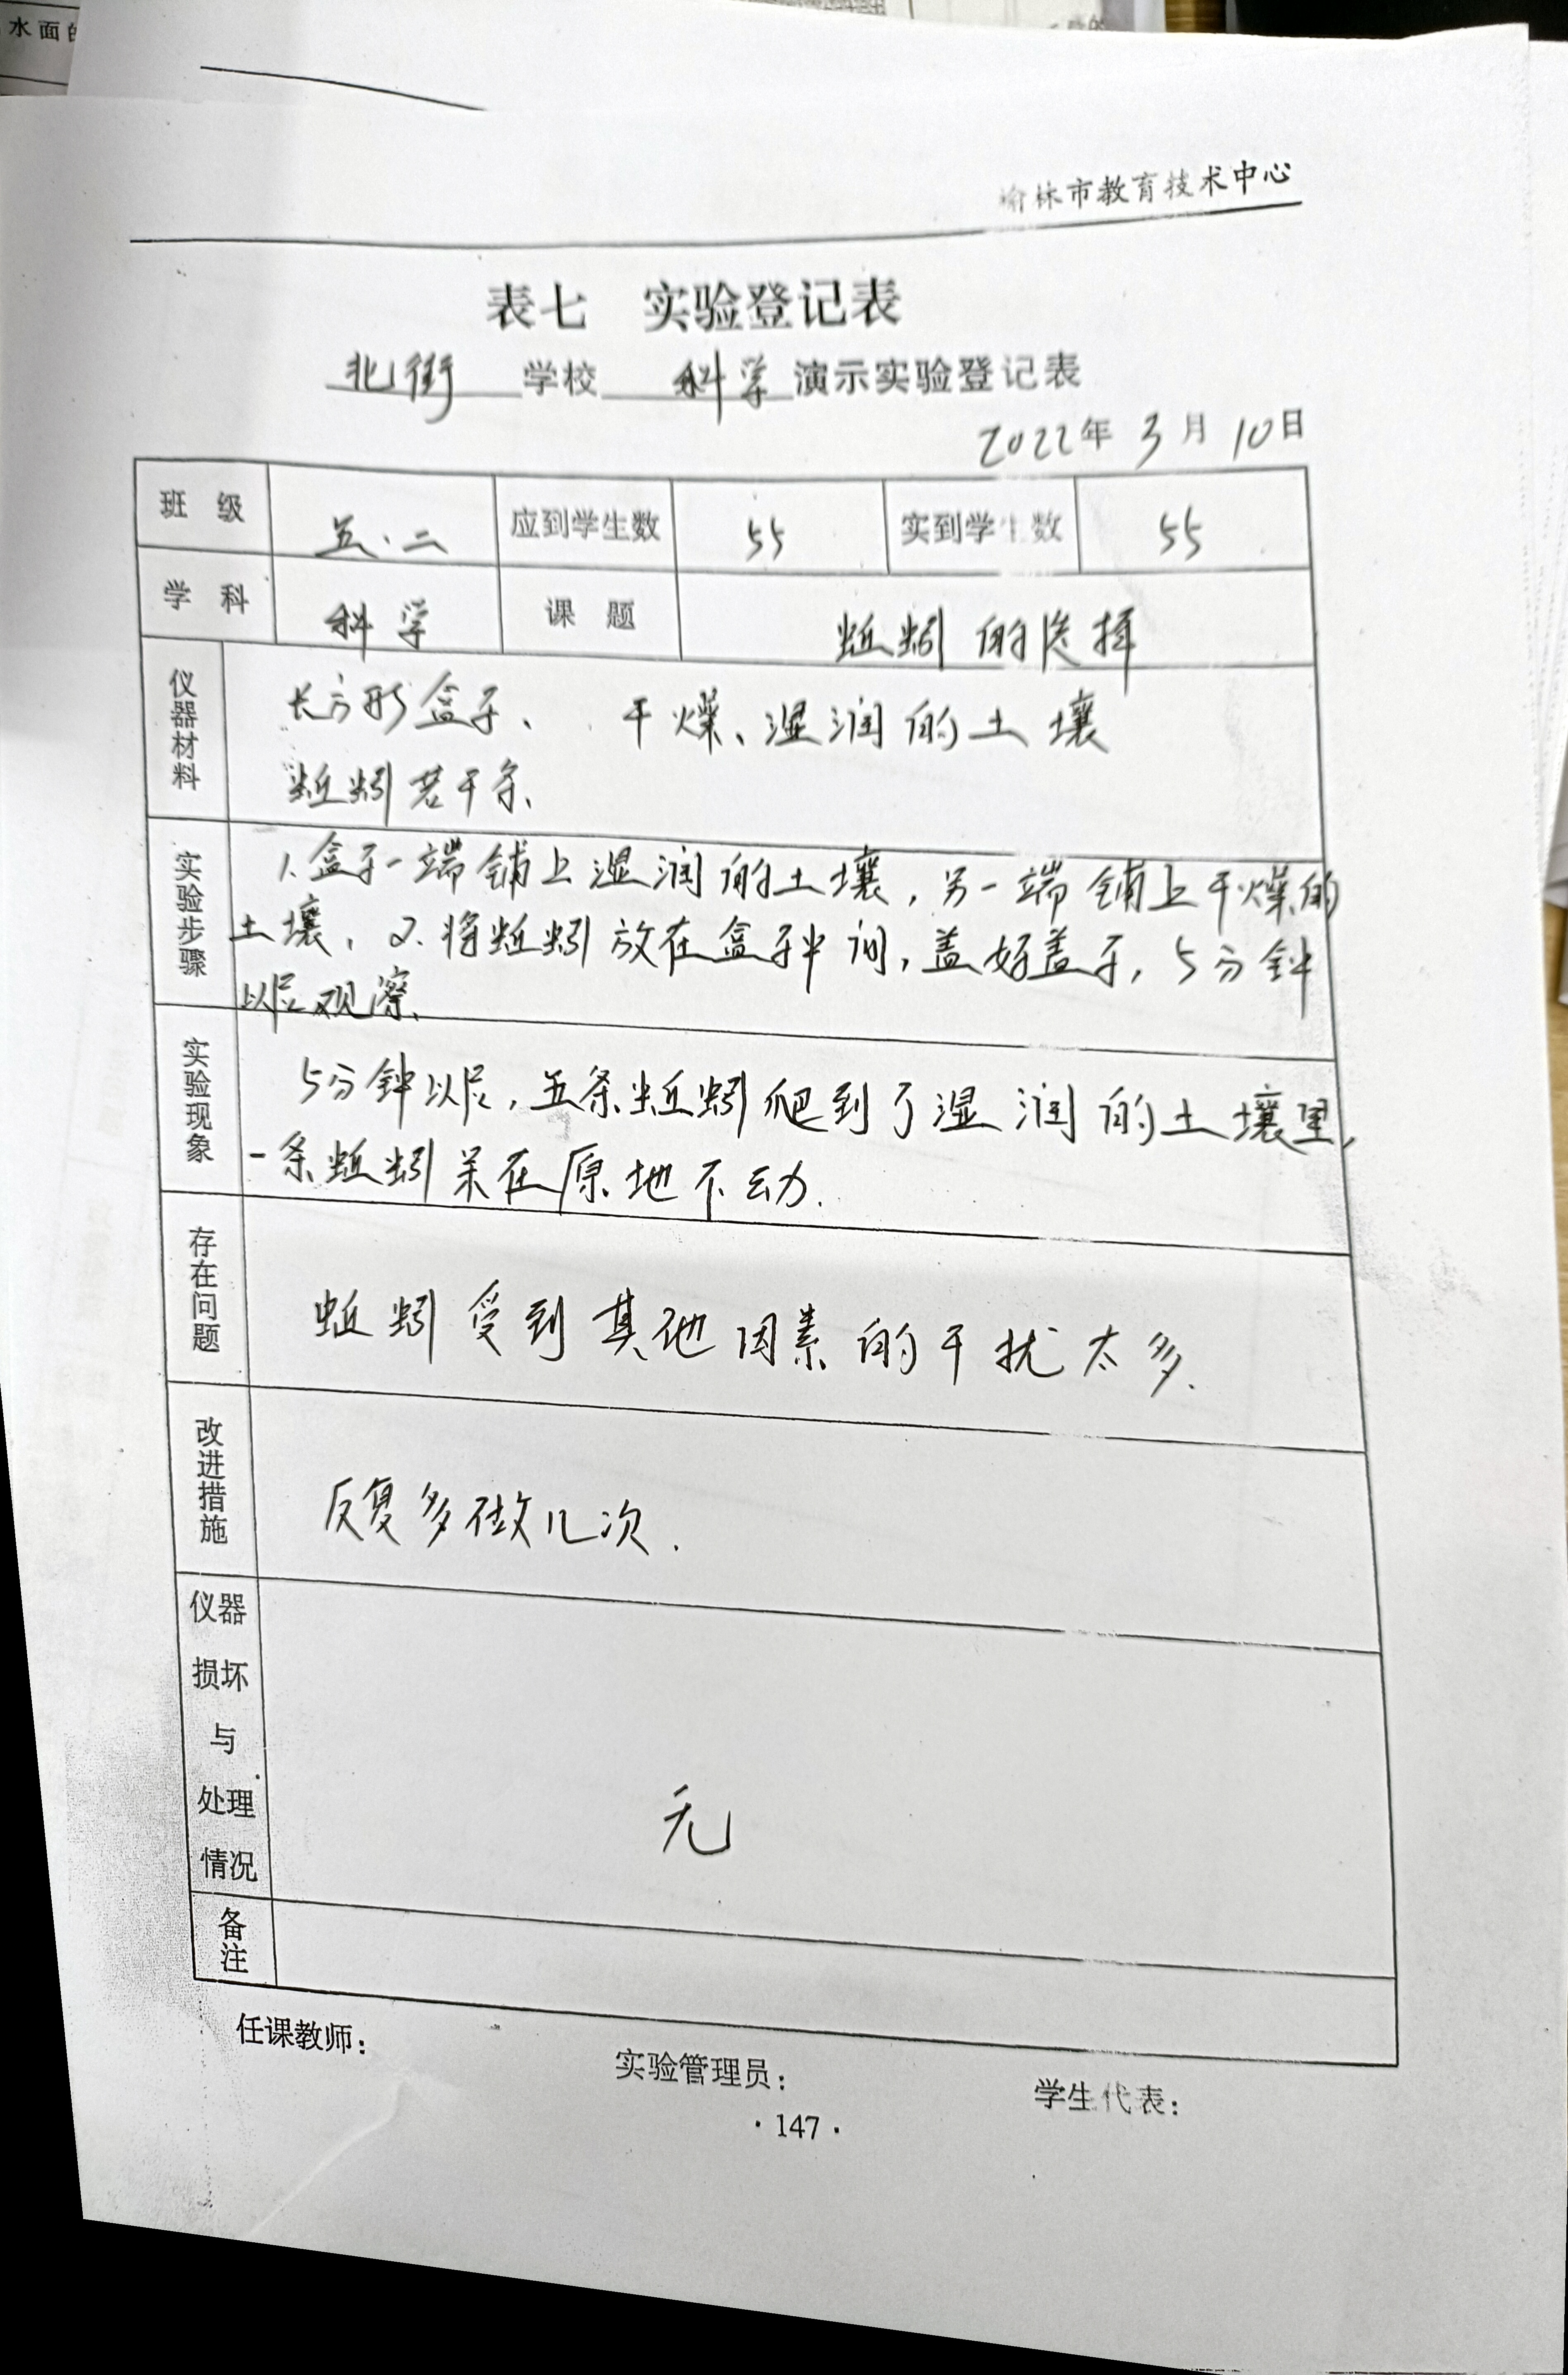 水面的
榆林市教育技术中心
表七 实验登记表
北街 学校 科学 演示实验登记表
2022年 3月 10日
班级 五.二 应到学生数 55 实到学生数 55
学科 科学 课题 蚯蚓的选择
仪器材料
长方形盒子、 干燥、湿润的土壤
蚯蚓若干条、
实验步骤
1.盒子一端铺上湿润的土壤,另一端铺上干燥的
土壤、2.将蚯蚓放在盒子中间,盖好盖子,5分钟
以后观察.
实验现象
5分钟以后,五条蚯蚓爬到了湿润的土壤里,
一条蚯蚓呆在原地不动.
存在问题
蚯蚓受到其他因素的干扰太多.
改进措施
反复多做几次.
仪器
损坏
与
处理
情况
无
备注
任课教师: 实验管理员: 学生代表:
·147·